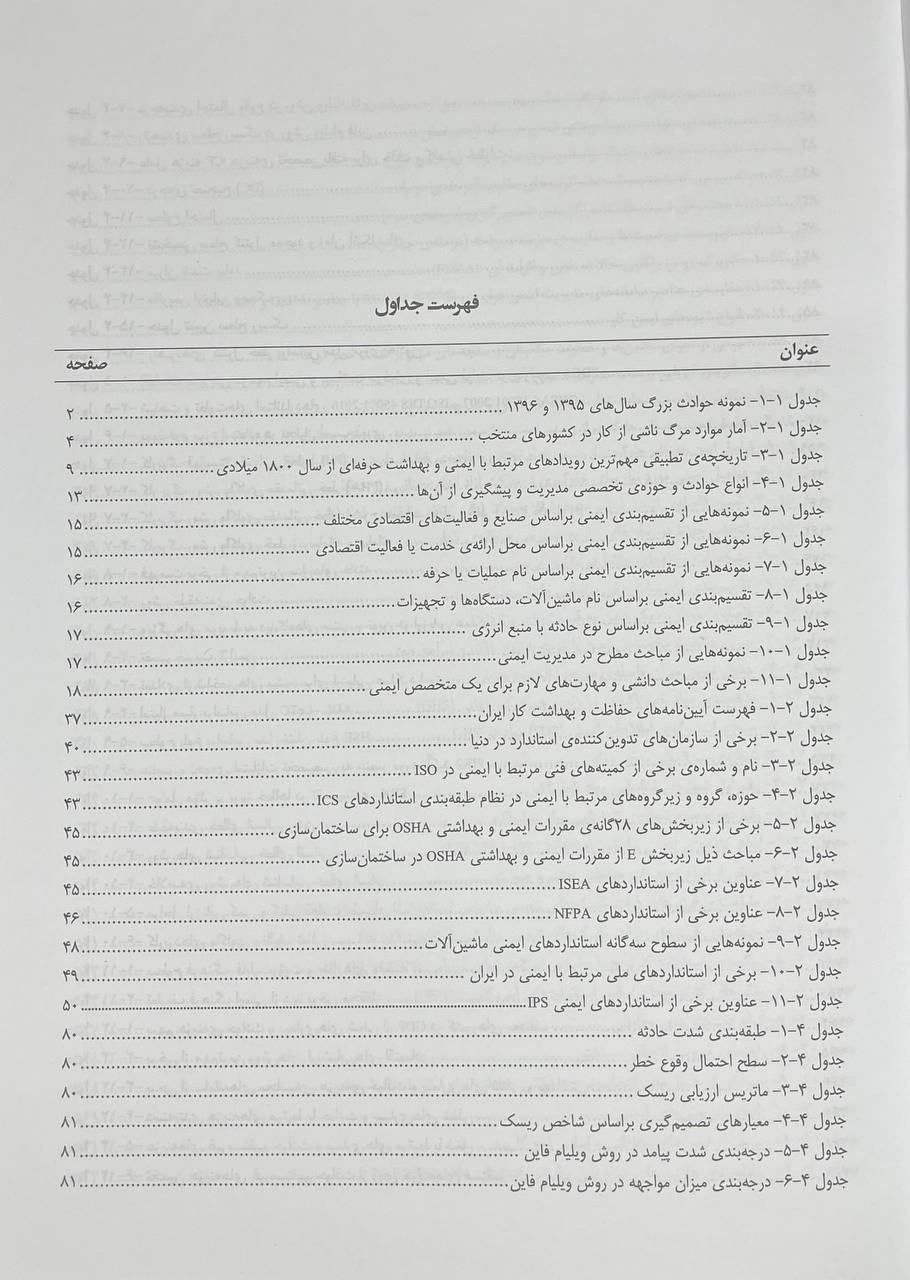 فهرست جداول
عنوان صفحه
جدول ۱-۱- نمونه حوادث بزرگ سال‌های ۱۳۹۵ و ۱۳۹۶ ........ ۲
جدول ۱-۲- آمار موارد مرگ ناشی از کار در کشورهای منتخب ........ ۴
جدول ۱-۳- تاریخچه‌ی تطبیقی مهم‌ترین رویدادهای مرتبط با ایمنی و بهداشت حرفه‌ای از سال ۱۸۰۰ میلادی ........ ۹
جدول ۱-۴- انواع حوادث و حوزه‌ی تخصصی مدیریت و پیشگیری از آن‌ها ........ ۱۳
جدول ۱-۵- نمونه‌هایی از تقسیم‌بندی ایمنی براساس صنایع و فعالیت‌های اقتصادی مختلف ........ ۱۵
جدول ۱-۶- نمونه‌هایی از تقسیم‌بندی ایمنی براساس محل ارائه‌ی خدمت یا فعالیت اقتصادی ........ ۱۵
جدول ۱-۷- نمونه‌هایی از تقسیم‌بندی ایمنی براساس نام عملیات یا حرفه ........ ۱۶
جدول ۱-۸- تقسیم‌بندی ایمنی براساس نام ماشین‌آلات، دستگاه‌ها و تجهیزات ........ ۱۶
جدول ۱-۹- تقسیم‌بندی ایمنی براساس نوع حادثه با منبع انرژی ........ ۱۷
جدول ۱-۱۰- نمونه‌هایی از مباحث مطرح در مدیریت ایمنی ........ ۱۷
جدول ۱-۱۱- برخی از مباحث دانشی و مهارت‌های لازم برای یک متخصص ایمنی ........ ۱۸
جدول ۲-۱- فهرست آیین‌نامه‌های حفاظت و بهداشت کار ایران ........ ۳۷
جدول ۲-۲- برخی از سازمان‌های تدوین‌کننده‌ی استاندارد در دنیا ........ ۴۰
جدول ۲-۳- نام و شماره‌ی برخی از کمیته‌های فنی مرتبط با ایمنی در ISO ........ ۴۳
جدول ۲-۴- حوزه، گروه و زیرگروه‌های مرتبط با ایمنی در نظام طبقه‌بندی استانداردهای ICS ........ ۴۳
جدول ۲-۵- برخی از زیربخش‌های ۲۸گانه‌ی مقررات ایمنی و بهداشتی OSHA برای ساختمان‌سازی ........ ۴۵
جدول ۲-۶- مباحث ذیل زیربخش E از مقررات ایمنی و بهداشتی OSHA در ساختمان‌سازی ........ ۴۵
جدول ۲-۷- عناوین برخی از استانداردهای ISEA ........ ۴۵
جدول ۲-۸- عناوین برخی از استانداردهای NFPA ........ ۴۶
جدول ۲-۹- نمونه‌هایی از سطوح سه‌گانه استانداردهای ایمنی ماشین‌آلات ........ ۴۸
جدول ۲-۱۰- برخی از استانداردهای ملی مرتبط با ایمنی در ایران ........ ۴۹
جدول ۲-۱۱- عناوین برخی از استانداردهای ایمنی IPS ........ ۵۰
جدول ۴-۱- طبقه‌بندی شدت حادثه ........ ۸۰
جدول ۴-۲- سطح احتمال وقوع خطر ........ ۸۰
جدول ۴-۳- ماتریس ارزیابی ریسک ........ ۸۰
جدول ۴-۴- معیارهای تصمیم‌گیری براساس شاخص ریسک ........ ۸۱
جدول ۴-۵- درجه‌بندی شدت پیامد در روش ویلیام فاین ........ ۸۱
جدول ۴-۶- درجه‌بندی میزان مواجهه در روش ویلیام فاین ........ ۸۱